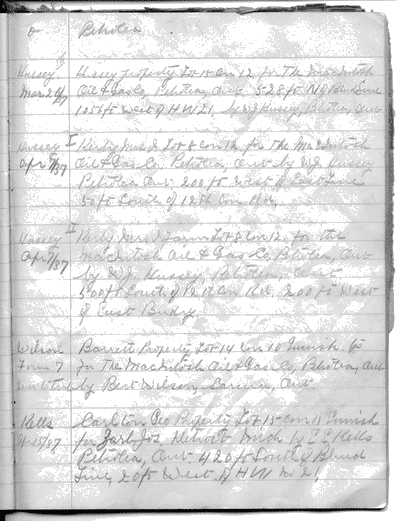 Petrolea
Hussey Hussey property Lot 15 Con 12, for the MacIntosh
Mar 20/37 Oil & Gas Co, Petrolea, Ont. 528 ft N of Blind Line
1056 ft West of HW 21, by WJ Hussey, Petrolea, Ont
Hussey I Lot 8 Con 12, for the MacIntosh
Apr /37 Oil & Gas Co, Petrolea, Ont by WJ Hussey
Petrolea Ont. 200 ft West of East Line
50 ft South of 12th Con Rd,
Hussey II farm Lot 8 Con 12, for the
Apr /37 MacIntosh Oil & Gas Co Petrolea, Ont
by WJ Hussey, Petrolea, Ont
500 ft South of Rd, 200 ft West
of East Bndry.
Wilson Barrett Property Lot 14 Con 10 Ennisk
Form 7 for The MacIntosh Oil & Gas Co, Petrolea, Ont
by Bert Wilson, Sarnia, Ont.
Kells Carlton Geo Property Lot 15 Con 11 Ennisk
15/37 for Jos, Detroit Mich by E E Kells
Petrolea, Ont. 420 ft South of Blind
Line, 20 ft West of HW no 21,